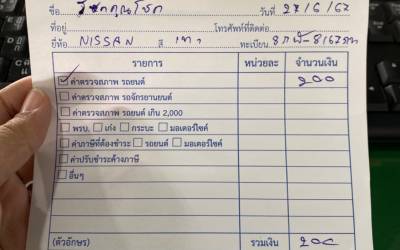 ชื่อ วันที่ 27/6/67
ที่อยู่ โทรศัพท์ที่ติดต่อ
ยี่ห้อ NISSAN สี เทา ทะเบียน
รายการ หน่วยละ จำนวนเงิน
ค่าตรวจสภาพ รถยนต์ 200
ค่าตรวจสภาพ รถจักรยานยนต์
ค่าตรวจสภาพ รถยนต์ เกิน 2,000
พรบ. เก๋ง กระบะ มอเตอร์ไซค์
ค่าภาษีที่ต้องชำระ รถยนต์ มอเตอร์ไซค์
ค่าปรับชำระค้างภาษี
อื่นๆ
(ตัวอักษร) รวมเงิน 200